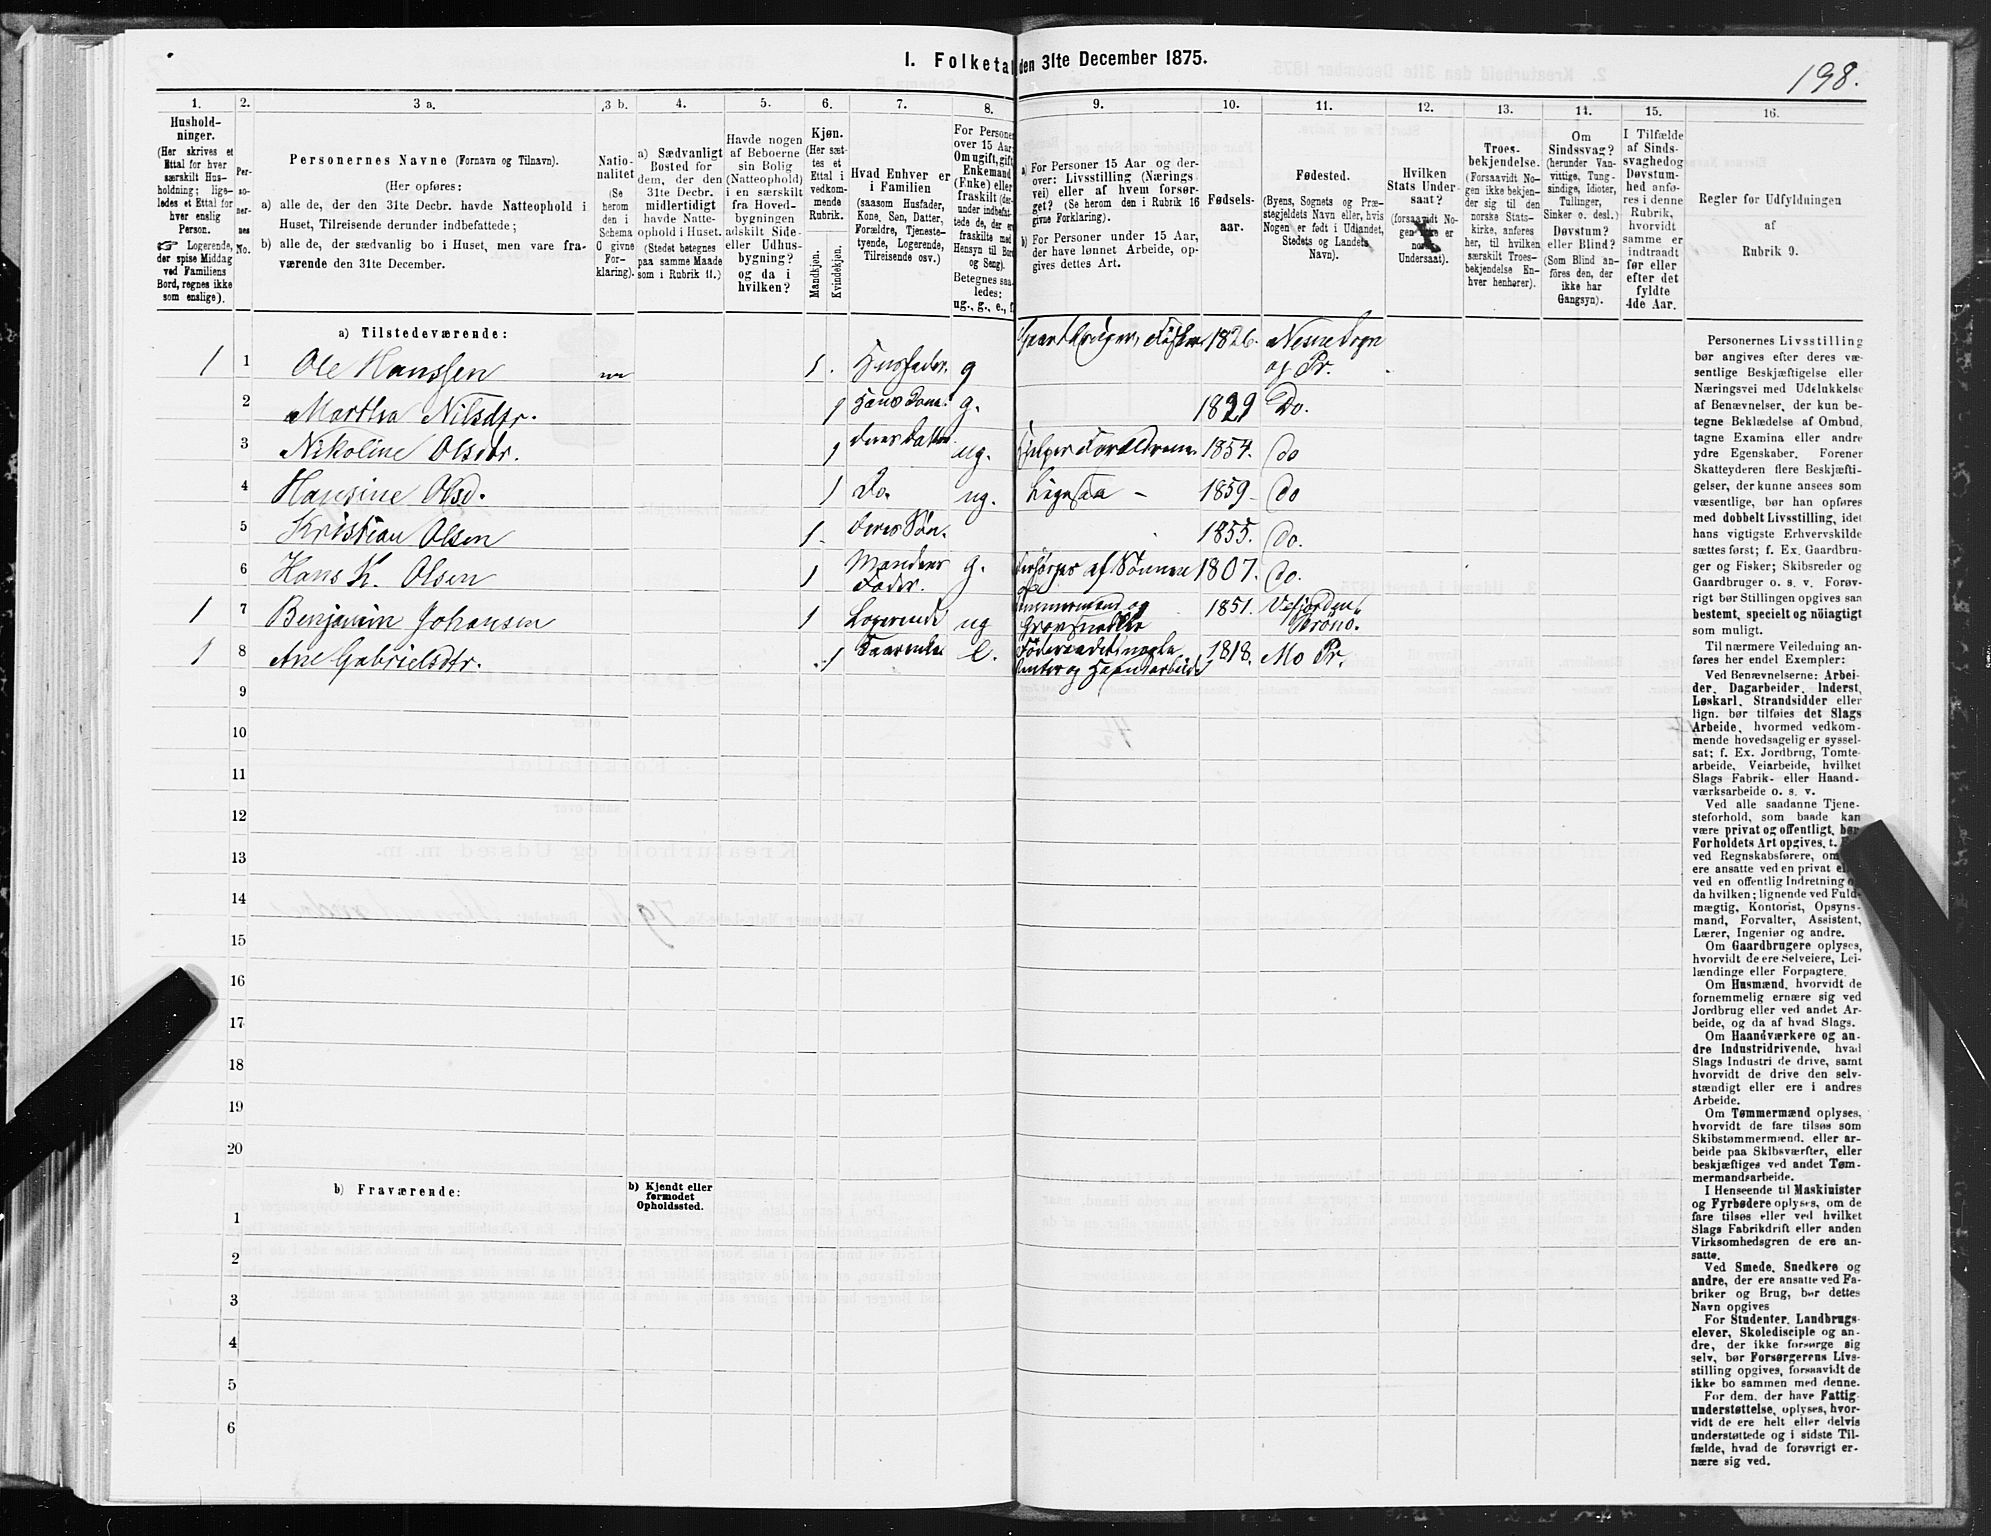 I. Folketal den 31te December 1875.
198.
1. 2. 3 a. 3 b. 4. 5. 6. 7. 8. 9. 10. 11. 12. 13. 14. 15. 16.
Hushold-
ninger.
(Her skrives et
Ettal for hver
særskilt Hus-
holdning; lige-
ledes et Ettal for
hver enslig
Person.
☞ Logerende,
der spise Middag
ved Familiens
Bord, regnes ikke
som enslige).
Per-
so-
ner-
nes
No.
Personernes Navne (Fornavn og Tilnavn).
(Her opføres:
a) alle de, der den 31te Decbr. havde Natteophold i
Huset, Tilreisende derunder indbefattede;
b) alle de, der sædvanlig bo i Huset, men vare fra-
værende den 31te December.
Natio-
nalitet
(Se
herom
den i
Schema
O givne
For-
klaring).
a) Sædvanligt
Bosted for
dem, der den
31te Decbr.
midlertidigt
havde Natte-
ophold i Huset.
(Stedet betegnes
paa samme Maade
som i Rubrik 11.)
Havde nogen
af Beboerne
sin Bolig
(Natteophold)
i en særskilt
fra Hoved-
bygningen
adskilt Side-
eller Udhus-
bygning?
og da i
hvilken?
Kjøn.
(Her sæt-
tes et
Ettal i
vedkom-
mende
Rubrik.
Mandkjøn.
Kvindekjøn.
Hvad Enhver er
i Familien
(saasom Husfader,
Kone, Søn, Datter,
Forældre, Tjeneste-
tyende, Logerende,
Tilreisende osv.)
For Personer
over 15 Aar:
Om ugift, gift,
Enkemand
(Enke) eller
fraskilt (der-
under indbefat-
tede de, der er
fraskilte med
Hensyn til Bord
og Seng).
Betegnes saa-
ledes:
ug., g., e., f.
a) For Personer 15 Aar og der-
over: Livsstilling (Nærings
vei) eller af hvem forsør-
get? (Se herom den i Rubrik 16
givne Forklaring).
b) For Personer under 15 Aar,
der have lønnet Arbeide, op-
gives dettes Art.
Fødsels-
aar.
Fødested.
(Byens, Sognets og Præ-
stegjeldets Navn eller, hvis
Nogen er født i Udlandet,
Stedets og Landets
Navn).
Hvilken
Stats Under-
saat?
(forsaavidt No-
gen ikke er
norsk
Undersaat).
Troes-
bekjendelse.
(Forsaavidt No-
gen ikke bekjen-
der sig til den
norske Stats-
kirke, anføres
her, til hvilken
særskilt Troes-
bekjendelse En-
hver henhører).
Om
Sindssvag?
(herunder Van-
vittige, Tung-
sindige, Idioter,
Tullinger,
Sinker o. desl.)
Døvstum?
eller Blind?
(Som Blind an-
føres den, der
ikke har
Gangsyn).
I Tilfælde
af Sinds-
svaghed og
Døvstum-
hed anfø-
res i denne
Rubrik,
hvorvidt
samme er
indtraadt
før eller
efter det
fyldte
4de Aar.
Regler for Udfyldningen
af
Rubrik 9.
a) Tilstedeværende:
1 1 Ole Hanssen nn 1. Husfader g Gaardbruger, Fisker 1826. Nesne Sogn
og Pr.
2 Martha Nilsdtr. 1 Hans Kone g. 1829 Do.
3 Nikoline Olsdtr. 1 deres Datter ug. hjelper Forældrene 1854. do
4 Hansine Olsd. 1 Do. ug. Ligesaa 1859 do
5 Kristian Olsen 1 deres Søn. 1855. do.
6 Hans K. Olsen 1 Mandens
Fader. g. forsørges af Sønnen 1807. do.
1 7 Benjamin Johansen 1 Logerende ug Tømmermand og 1851. Vefjorden,
Brønø.
1 8 Ane Gabrielsdtr. 1 e. 1818. Mo Pr.
og Haandarbeide
9
10
11
12
13
14
15
16
17
18
19
20
b) Fraværende:
b) Kjendt eller
formodet
Opholdssted.
1
2
3
4
5
6
Personernes Livsstilling
bør angives efter deres væ-
sentlige Beskjæftigelse eller
Næringsvei med Udelukkelse
af Benævnelser, der kun be-
tegne Beklædelse af Ombud,
tagne Examina eller andre
ydre Egenskaber. Forener
Skatteyderen flere Beskjæfti-
gelser, der kunne ansees som
væsentlige, bør han opføres
med dobbelt Livsstilling, idet
hans vigtigste Erhvervskilde
sættes først; f. Ex. Gaardbru-
ger og Fisker; Skibsreder og
Gaardbruger o. s. v. Forøv-
rigt bør Stillingen opgives saa
bestemt, specielt og nöiagtigt
som muligt.
Til nærmere Veiledning an-
føres her endel Exempler:
Ved Benævnelserne: Arbei-
der, Dagarbeider, Inderst,
Løskarl, Strandsidder eller
lign. bør tilføies det Slags
Arbeide, hvormed vedkom-
mende hovedsagelig er syssel-
sat; f. Ex. Jordbrug, Tomte-
arbeide, Veiarbeide, hvilket
Slags Fabrik- eller Haand-
værksarbeide o. s. v.
Ved alle saadanne Tjene-
steforhold, som baade kan
være privat og offentligt, bør
Forholdets Art opgives, t.
ved Regnskabsførere, om
ere ansatte ved en privat el
ved en offentlig Indretning o
da hvilken; lignende ved Fuld-
mægtig, Kontorist, Opsyns-
mand, Forvalter, Assistent,
Lærer, Ingeniør og andre.
Om Gaardbrugere oplyses,
hvorvidt de ere Selveiere, Lei-
lændinge eller Forpagtere.
Om Husmænd, hvorvidt de
fornemmelig ernære sig ved
Jordbrug eller ved andet Ar-
beide, og da af hvad Slags.
Om Haandværkere og an-
dre Industridrivende, hvad
Slags Industri de drive, samt
hvorvidt de drive den selv-
stændigt eller ere i andres
Arbeide.
Om Tømmermænd oplyses,
hvorvidt de fare tilsøs som
Skibstømmermænd, eller ar-
beide paa Skibsværfter, eller
beskjæftiges ved andet Tøm-
mermandsarbeide.
I Henseende til Maskinister
og Fyrbødere oplyses, om de
fare tilsøs eller ved hvilket
Slags Fabrikdrift eller anden
Virksomhedsgren de ere an-
satte.
Ved Smede, Snedkere og
andre, der ere ansatte ved Fa-
briker og Brug, bør dettes
Navn opgives
For Studenter, Landbrugs-
elever, Skoledisciple og an-
dre, der ikke forsørge sig
selv, bør Forsørgerens Livs-
stilling opgives, forsaavidt de
ikke bo sammen med denne.
For dem, der have Fattig-
understøttelse, oplyses, hvor-
vidt de ere helt eller delvis
understøttede og i sidste Til-
fælde, hvad de forøvrigt er-
nære sig ved.